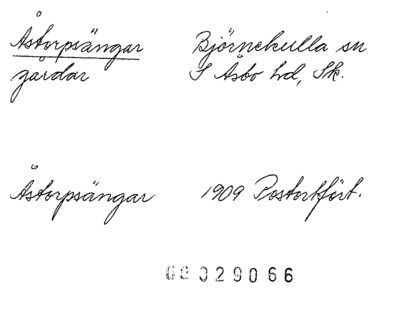 Åstorpsängar Björnekulla sn
gårdar S Åsbo hd, Sk.
Åstorpsängar 1909 Postortfört.
029066